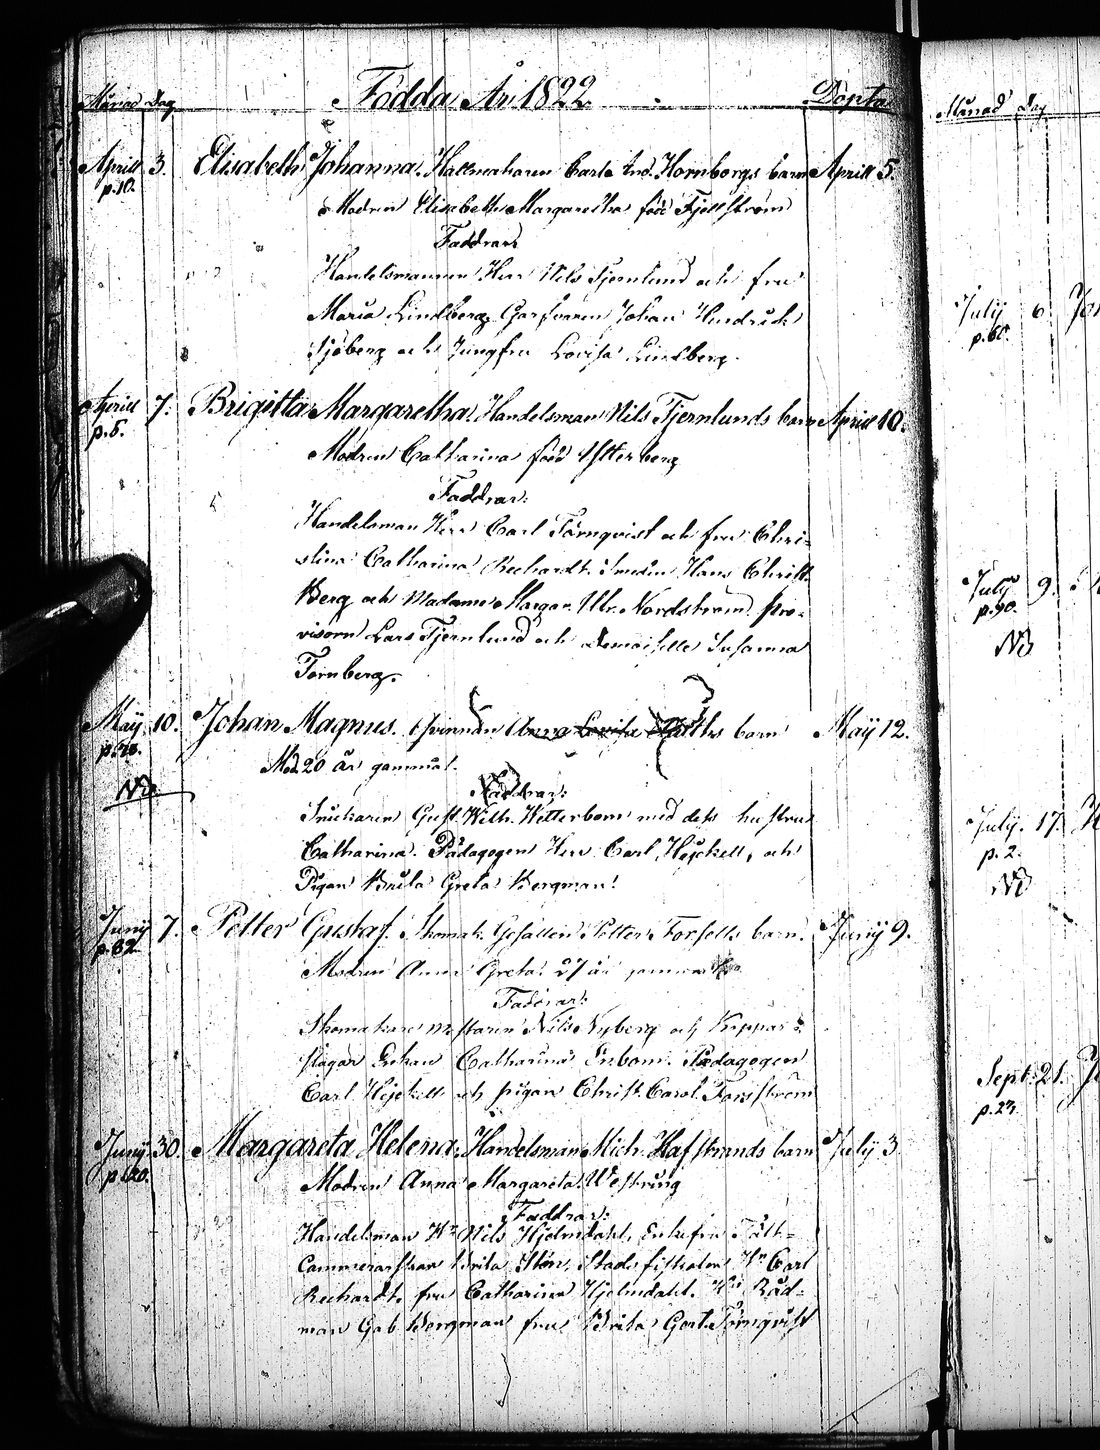 Månad Dag Födda År 1822. Döpta
Aprill 3. Elisabeth Johanna. Hattmakaren Carl And. Hornborgs barn Aprill 5.
p.10. Modren Elisabeth Margaretha född Fjellström
Faddrar
Handelsmannen Herr Nils Tjernlund och fru
Maria Lindberg. Garfvaren Johan Hendrick
Sjöberg och Jungfru Lovisa Lindberg.
Aprill 7. Brigitta Margaretha. Handelsman Nils Tjernlunds barn Aprill 10.
p.5. Modren Catharina född Ytterberg
Faddrar:
Handelsman Herr Carl Törnqvist och fru Chri-
stina Catharina Rechardt. Smeden Hans Christ.
Berg och Madame Margar. Ulr. Nordström. pro-
visorn Lars Tjernlund och Demoiselle Susanna
Törnberg.
Maij 10. Johan Magnus. Qvinnan Anna Lovisa barn Maij 12.
Mod. 20 år gammal.
Nb Faddrar:
Snickaren Gust. Wilh. Wetterbom med dess hustru
Catharina. Pädagogen Herr Carl Heyckell, och
Pigan Brita Greta Bergman.
Junij 7. Petter Gustaf. Skomak. Gesällen Petter Forsells barn. Junij 9.
p.82. Modren Anna Greta. 27 år gammal
Faddrar:
Skomakare mästaren Nils Nyberg och Koppar-
slagar Enkan Catharina Enbom. Pædagogen
Carl Heyckell och pigan Christ. Carol. Forsström
Junij 30. Margareta Helena. Handelsman Mich. Hafstrands barn July 3.
Modren Anna Margareta Westring
Faddrar:
Handelsman Hr Nils Hjelmdahl, Enkefru Fält-
Cammererskan Brita Sten, Stadsfiskalen Hr Carl
Rechardt, fru Catharina Hjelmdahl. Hr Råd-
man Gab. Bergman fru Brita Gert. Törnqvist
Månad Dag
July 6. Jo
p.60.
July 9.
p.90.
Nb
July. 17.
p.2.
Nb
Sept. 21.
p.27.